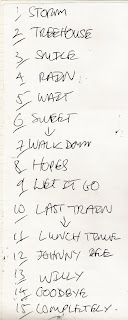 1 STORM
2 TREEHOUSE
3 SMILE
4 RAIN
5 WAIT
6 SWEET
↓
7 WALK DOWN
8 HOPES
9 LET IT GO
10 LAST TRAIN
↓
11 LUNCH TIME
12 JOHNNY
13 WILLY
14 GOODBYE
15 COMPLETELY.